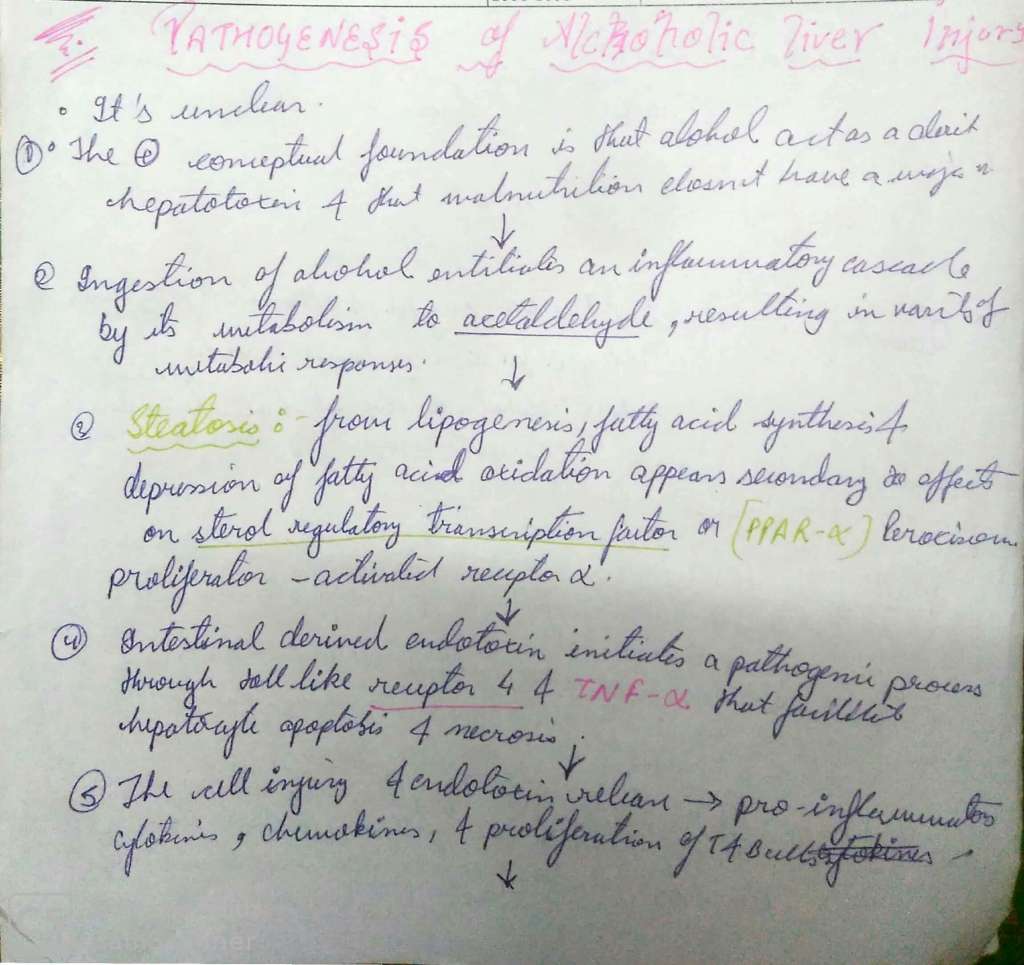 PATHOGENESIS of Alchoholic liver Injury
• It's unclear.
① • The conceptual foundation is that alohol act as a
hepatotoxin & that malnutrition doesnt have a major
↓
② Ingestion of alcohol entitiates an inflammatory cascade
by its metabolism to acetaldehyde, resulting in of
metabolic responses.
↓
② Steatosis :- from lipogenesis, fatty acid synthesis &
depression of fatty acid oxidation appears secondary to effects
on sterol regulatory transcription factor or [PPAR-α] Peroxisom
proliferator - activated receptor α.
↓
④ Intestinal derived endotoxin initiates a pathogenic process
through toll like receptor 4 & TNF-α that
hepatocyte apoptosis & necrosis.
↓
⑤ The cell injury & endotoxin release → pro-inflammatory
cytokines, chemokines, & proliferation of T & B cells cytokines
↓